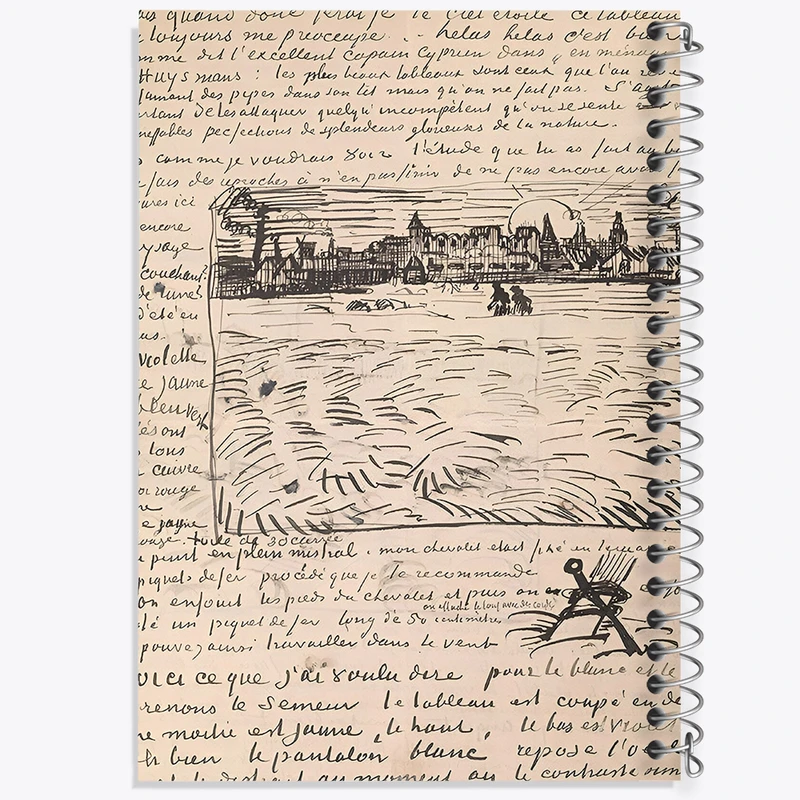 quand donc ferai je le ciel étoilé ce tableau
toujours me préoccupe . . helas helas c'est
mme dit l'excellent copain Cyprien dans „en ménage
Huysmans : les plus beaux tableaux sont ceux que l'on
fumant des pipes dans son lit mais qu'on ne fait pas. S'agit
de les attaquer quelqu'incompétent qu'on se sente
ineffables perfections de splendeurs glorieuses de la nature.
comme je voudrais voir l'étude que tu as fait au
fais des reproches à n'en pas finir de ne pas encore avoir
ures ici
encore
ysage
couchant.
de lune?
d'été en
us.
violette
e jaune
bleu vert
és ont
tous
cuivre
or rouge
e jaune
toile de 30 carrée
peint en plein mistral. mon chevalet était fixé en terre
piquets de fer procédé que je te recommande
on enfouit les pieds du chevalet et puis on
on attache le tout avec des cordes
té un piquet de fer long de 50 centimètres
pouvez ainsi travailler dans le vent
voici ce que j'ai voulu dire pour le blanc et le
renons le Semeur le tableau est coupé en de
ne moitié est jaune , le haut , le bas est violet
h bien le pantalon blanc repose l'o
et le distrait au moment où le contraste sim